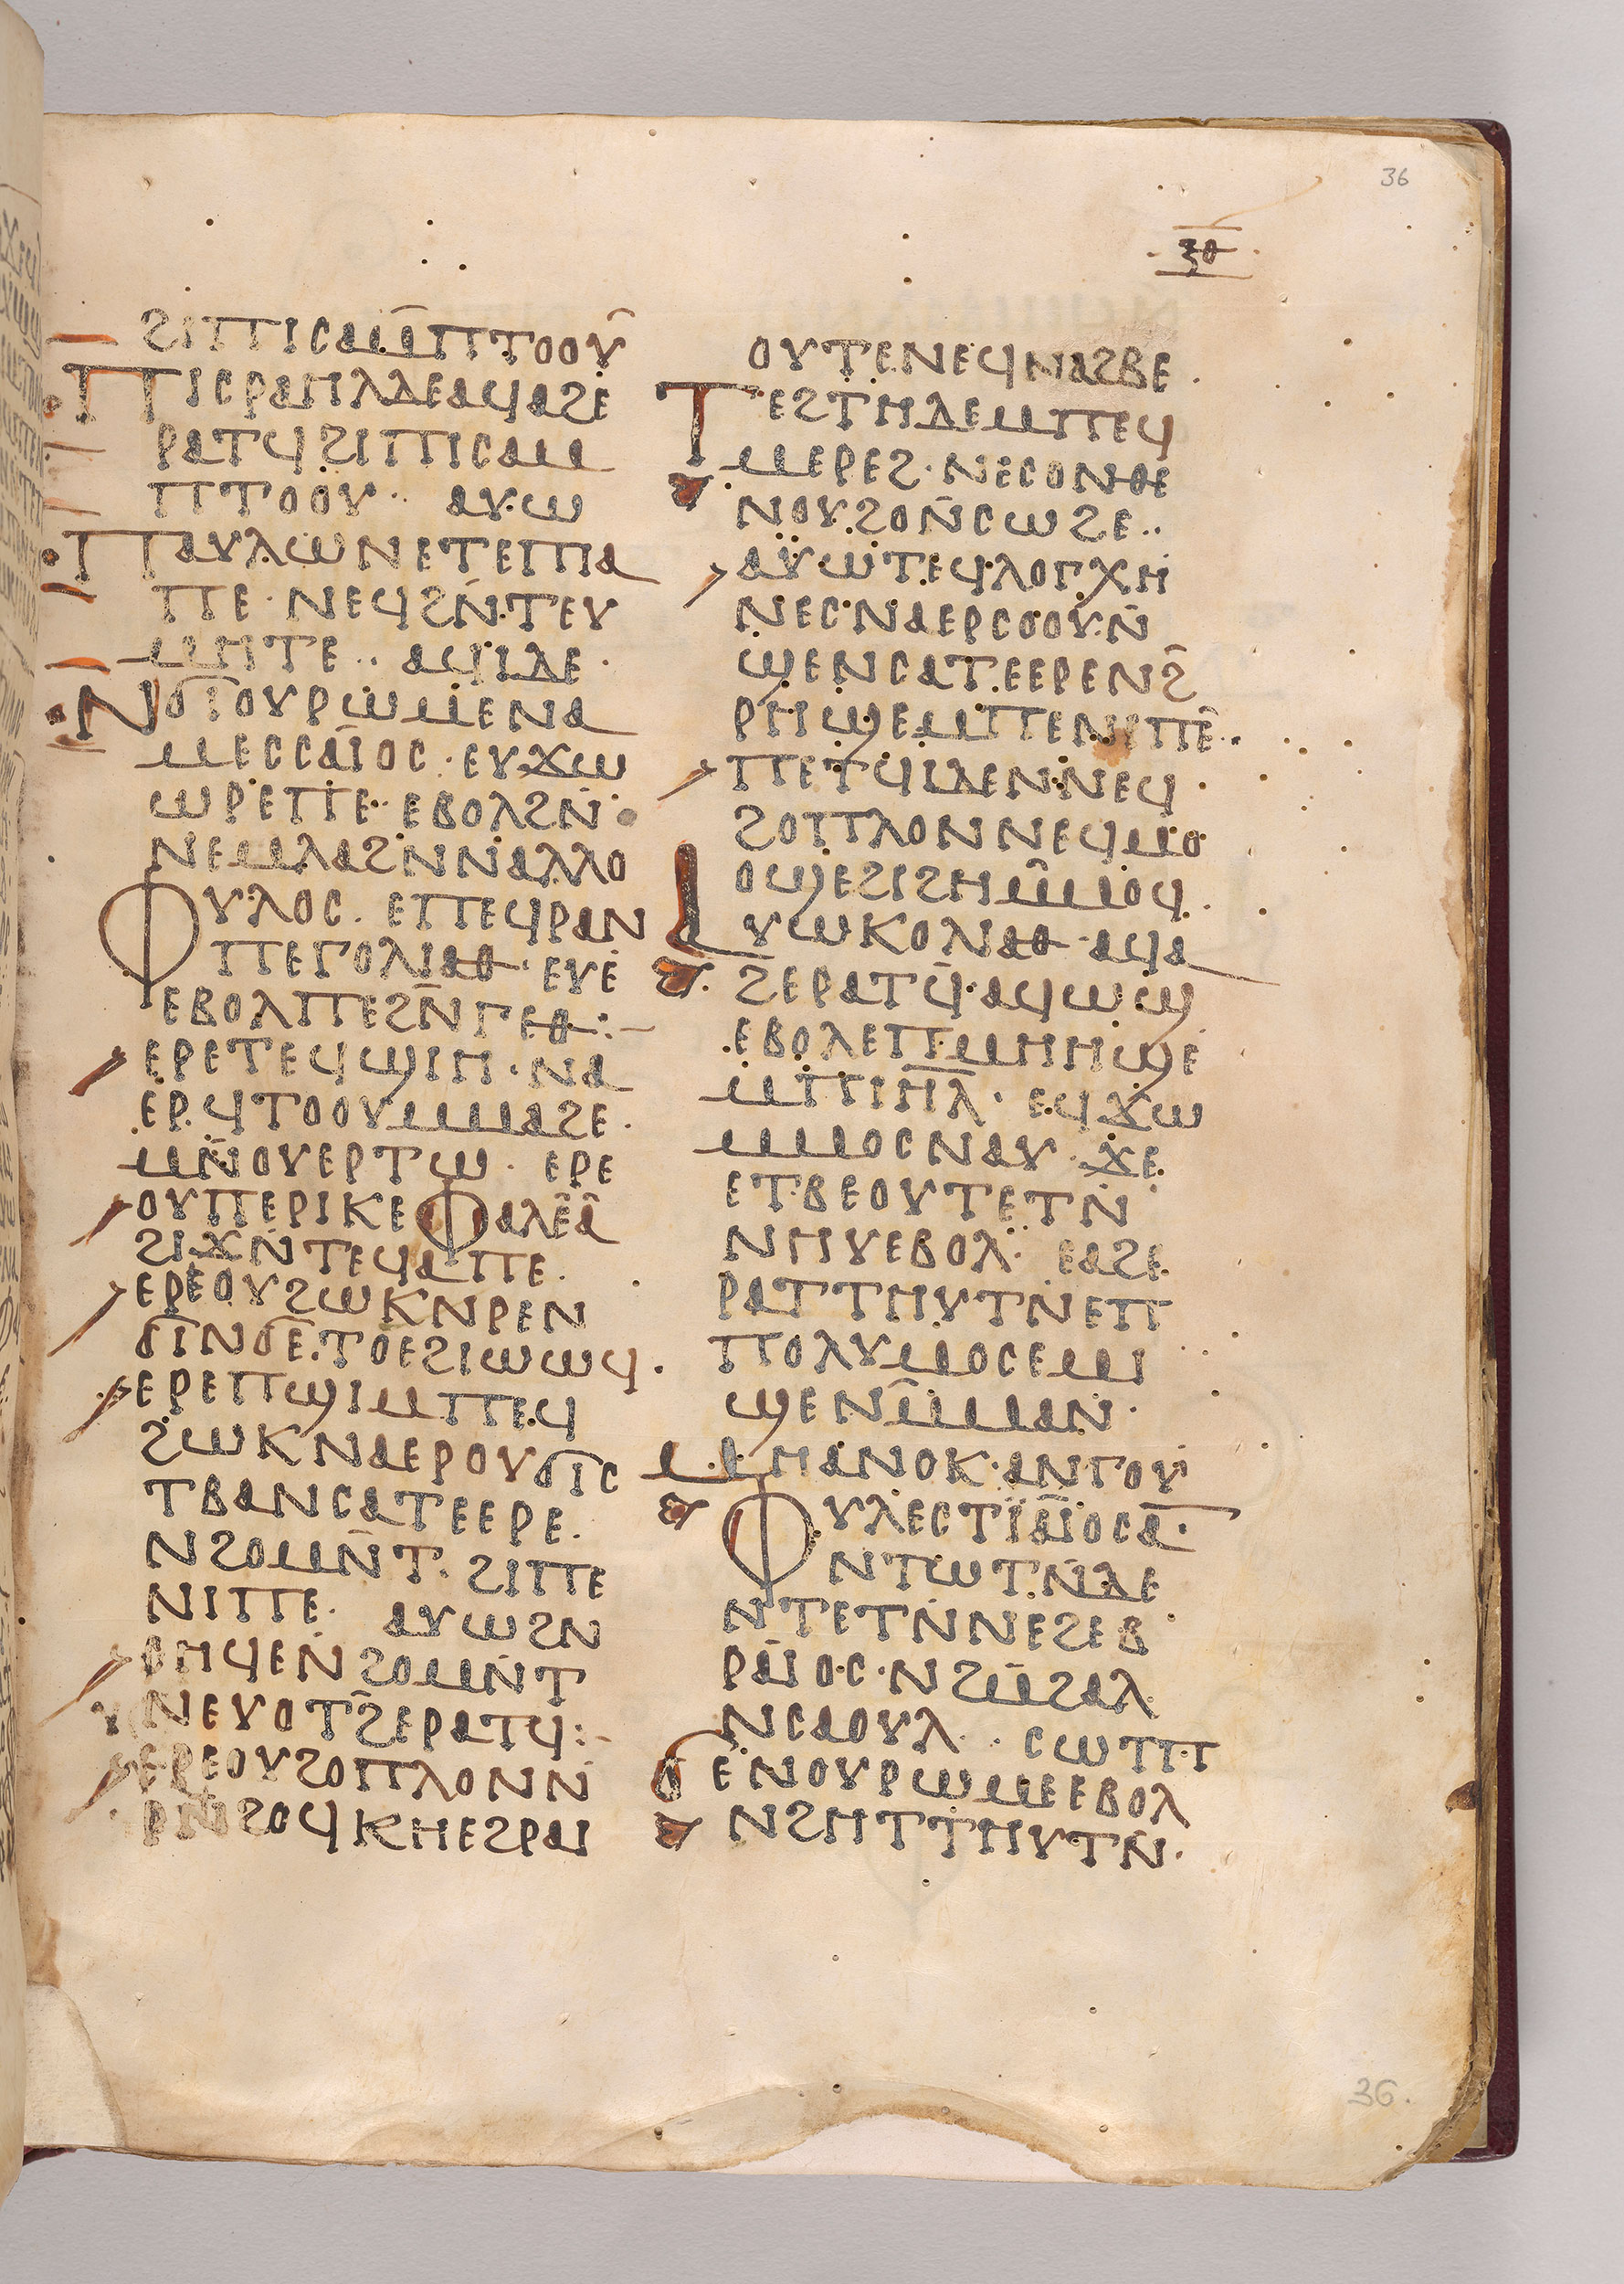 36
ⲝⲑ
ϩⲓⲡⲓⲥⲁⲙ̄ⲡⲧⲟⲟⲩ̄
ⲡⲓⲥⲣⲁⲏⲗⲇⲉⲁϥⲁϩⲉ
ⲣⲁⲧϥϩⲓⲡⲓⲥⲁⲙ
ⲡⲧⲟⲟⲩ·· ⲁⲩⲱ
ⲡⲁⲩⲗⲱⲛⲉⲧⲉⲡⲓⲁ
ⲡⲉ·ⲛⲉϥϩⲛ̄·ⲧⲉⲩ
ⲙⲏⲧⲉ·· ⲁϥⲓⲇⲉ·
ⲛϭⲓⲟⲩⲣⲱⲙⲉⲛⲁ
ⲙⲉⲥⲥⲁⲓ̄ⲟⲥ·ⲉⲩϫⲱ
ⲱⲣⲉⲡⲉ··ⲉⲃⲟⲗϩⲛ̄
ⲛⲉⲙⲗⲁϩⲛⲛⲁⲗⲗⲟ
ⲫⲩⲗⲟⲥ· ⲉⲡⲉϥⲣⲁⲛ
ⲡⲉⲅⲟⲗⲓⲁⲑ·ⲉⲩⲉ
ⲉⲃⲟⲗⲡⲉϩⲛ̄ⲅⲉⲑ:–
ⲉⲣⲉⲧⲉϥϣⲓⲏ·ⲛⲁ
ⲉⲣ·ϥⲧⲟⲟⲩⲙⲙⲁϩⲉ·
ⲙⲛ̄ⲟⲩⲉⲣⲧⲱ· ⲉⲣⲉ
ⲟⲩⲡⲉⲣⲓⲕⲉⲫⲁⲗⲉ̄ⲁ̄
ϩⲓϫⲛ̄ⲧⲉϥⲁⲡⲉ·
ⲉⲣⲉⲟⲩϩⲱⲕⲛⲣⲉⲛ
ϭⲓⲛϭⲉ·ⲧⲟⲉϩⲓⲱⲱϥ·
ⲉⲣⲉⲡϣⲓⲙⲡⲉϥ
ϩⲱⲕⲛⲁⲉⲣⲟⲩϭⲓⲥ
ⲧⲃⲁⲛⲥⲁⲧⲉⲉⲣⲉ·
ⲛϩⲟⲙⲛ̄ⲧ·ϩⲓⲡⲉ
ⲛⲓⲡⲉ· ⲁⲩⲱϩⲛ
ⲃⲏϥⲉⲛ̄ϩⲟⲙⲛ̄ⲧ
ⲛⲉⲩⲟⲧϩ̄ⲉⲣⲁⲧϥ:
ⲉⲣⲉⲟⲩϩⲟⲡⲗⲟⲛⲛ
ϩⲟϥⲕⲏⲉϩⲣⲁⲓ
ⲟⲩⲧⲉⲛⲉϥⲛⲁϩⲃⲉ·
ⲧⲉϩⲧⲏⲇⲉⲙⲡⲉϥ
ⲙⲉⲣⲉϩ·ⲛⲉⲥⲟⲛⲑⲉ
ⲛⲟⲩϩⲟⲛ̄ⲥⲱϩⲉ··
ⲁⲩⲱⲧⲉϥⲗⲟⲅⲭⲏ
ⲛⲉⲥⲛⲁⲉⲣⲥⲟⲟⲩⲛ̄
ϣⲉⲛⲥⲁⲧⲉⲉⲣⲉⲛϩ̄
ⲣⲏϣⲉⲙⲡⲉⲛⲓⲡⲉ̄··
ⲡⲉⲧϥⲓⲇⲉⲛⲛⲉϥ·
ϩⲟⲡⲗⲟⲛⲛⲉϥⲙⲟ
ⲟϣⲉϩⲓϩⲏⲙ̄ⲙⲟϥ·
ⲁⲩⲱⲕⲟⲗⲓⲁⲑ·ⲁϥⲁ
ϩⲉⲣⲁⲧϥ̄·ⲁϥⲱϣ
ⲉⲃⲟⲗⲉⲡⲙⲏⲏϣⲉ
ⲙⲡⲓⲏ̄ⲗ̄· ⲉϥϫⲱ
ⲙⲙⲟⲥⲛⲁⲩ·ϫⲉ
ⲉⲧⲃⲉⲟⲩⲧⲉⲧⲛ̄
ⲛⲏⲩⲉⲃⲟⲗ· ⲉⲁϩⲉ
ⲣⲁⲧⲧⲏⲩⲧⲛ̄ⲉⲡ
ⲡⲟⲗⲩⲙⲟⲥⲉⲙⲓ
ϣⲉⲛⲙ̄ⲙⲁⲛ·
ⲙⲏⲁⲛⲟⲕ·ⲁⲛⲅⲟⲩ
ⲫⲩⲗⲉⲥⲧⲓ̈ⲁⲓ̄ⲟⲥⲁ·
ⲛⲧⲱⲧⲛ̄ⲇⲉ
ⲛⲧⲉⲧⲛ̄ⲛⲉϩⲉⲃ
ⲣⲁⲓ̄ⲟⲥ·ⲛϩⲙ̄ϩⲁⲗ
ⲛⲥⲁⲟⲩⲗ· ·ⲥⲱⲧⲡ
ϭⲉⲛⲟⲩⲣⲱⲙⲉⲉⲃⲟⲗ
ⲛϩⲏⲧⲧⲏⲩⲧⲛ̄·
36.